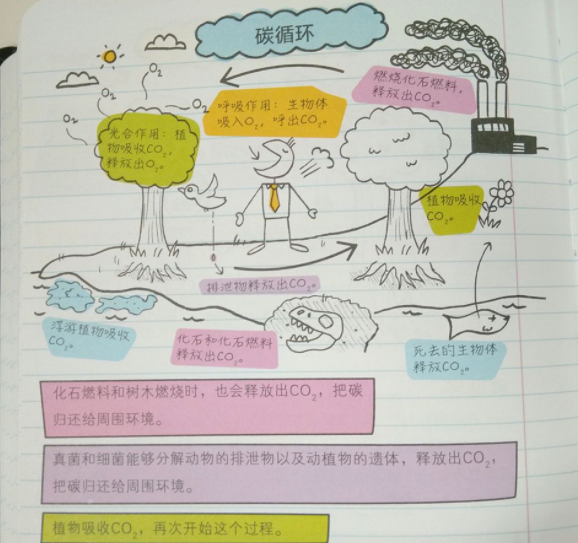 碳循环
O₂
O₂
O₂
O₂
燃烧化石燃料，
释放出CO₂。
呼吸作用：生物体
吸入O₂，呼出CO₂。
光合作用：植
物吸收CO₂，
释放出O₂。
植物吸收
CO₂。
排泄物释放出CO₂。
浮游植物吸收
CO₂。
化石和化石燃料
释放出CO₂。
死去的生物体
释放CO₂。
化石燃料和树木燃烧时，也会释放出CO₂，把碳
归还给周围环境。
真菌和细菌能够分解动物的排泄物以及动植物的遗体，释放出CO₂，
把碳归还给周围环境。
植物吸收CO₂，再次开始这个过程。